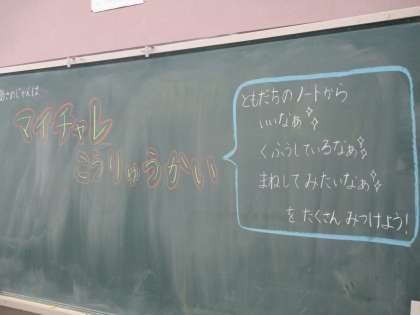 あさのじかんは
マイチャレ
こうりゅうかい
ともだちのノートから
いいなぁ
くふうしているなぁ
まねしてみたいなぁ
をたくさんみつけよう！